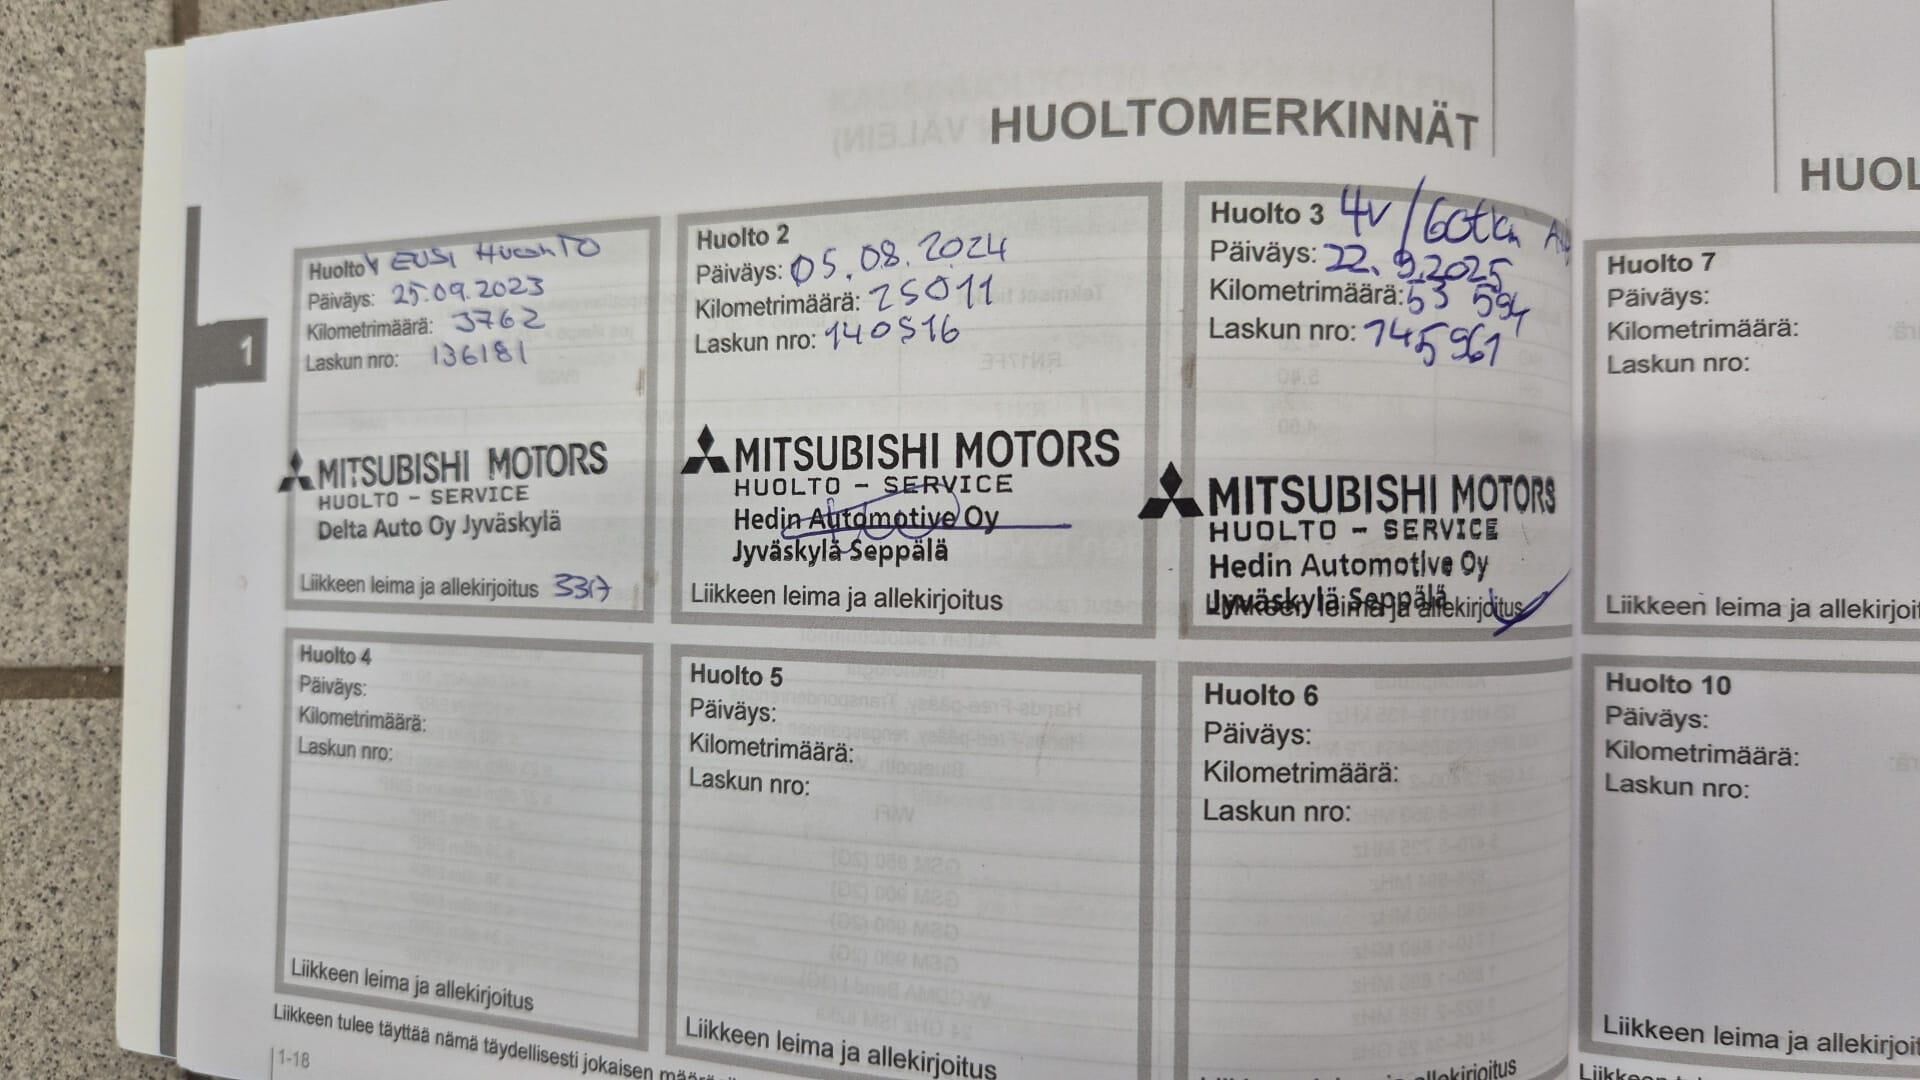 HUOLTOMERKINNÄT
HUOL
1
Huolto 1 EUSI HUOLTO
Päiväys: 25.09.2023
Kilometrimäärä: 3762
Laskun nro: 136181
MITSUBISHI MOTORS
HUOLTO - SERVICE
Delta Auto Oy Jyväskylä
Liikkeen leima ja allekirjoitus
Huolto 2
Päiväys: 05.08.2024
Kilometrimäärä: 25011
Laskun nro: 140516
MITSUBISHI MOTORS
HUOLTO - SERVICE
Hedin Automotive Oy
Jyväskylä Seppälä
Liikkeen leima ja allekirjoitus
Huolto 3 4v/60tkm
Päiväys: 22.9.2025
Kilometrimäärä: 53 594
Laskun nro: 145961
MITSUBISHI MOTORS
HUOLTO - SERVICE
Hedin Automotive Oy
Jyväskylä Seppälä
Liikkeen leima ja allekirjoitus
Huolto 7
Päiväys:
Kilometrimäärä:
Laskun nro:
Liikkeen leima ja allekirjoit
Huolto 4
Päiväys:
Kilometrimäärä:
Laskun nro:
Liikkeen leima ja allekirjoitus
Huolto 5
Päiväys:
Kilometrimäärä:
Laskun nro:
Liikkeen leima ja allekirjoitus
Huolto 6
Päiväys:
Kilometrimäärä:
Laskun nro:
Liikkeen leima ja allekirjoitus
Huolto 10
Päiväys:
Kilometrimäärä:
Laskun nro:
Liikkeen leima ja allekirjoit
Liikkeen tulee täyttää nämä täydellisesti jokaisen
1-18